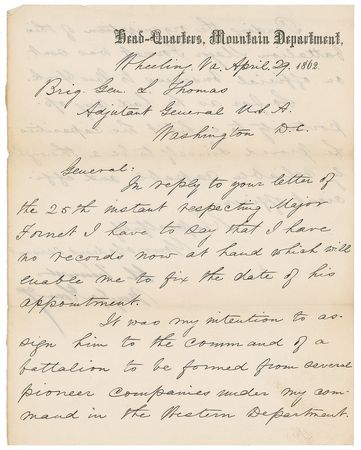 Head-Quarters, Mountain Department,
Wheeling, Va, April, 29, 1862.
Brig. Gen. L Thomas
Adjutant General U.S.A.
Washington D.C.
General:
In reply to your letter of
the 25th instant respecting Major
Fornet I have to say that I have
no records now at hand which will
enable me to fix the date of his
appointment.
It was my intention to as-
sign him to the command of a
battalion to be formed from several
pioneer companies under my com-
mand in the Western Department.